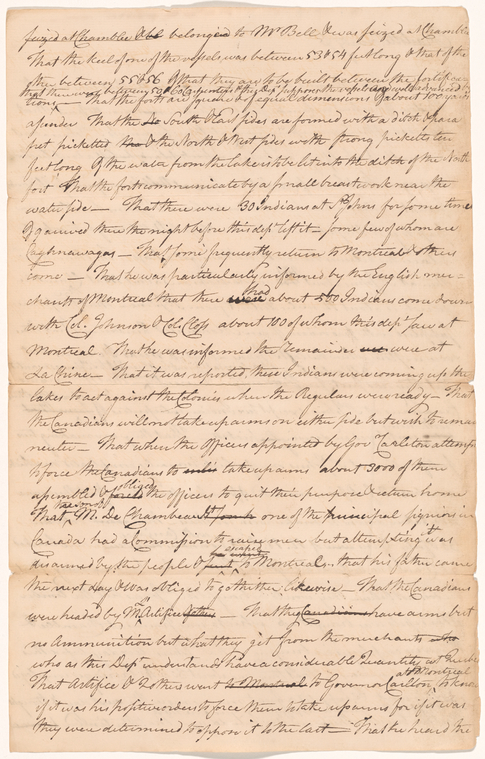 seized at Chamblee & belonged to Mr Bell & was seized at Chamblee
That the keel of one of the vessels was between 53 & 54 feet long & that of the
other between 55 & 56 & that they are to be built between the fortifica
that there were between 50 & 60 Carpenters
tions — That the forts are square & of equal dimensions of about 100 yards
asunder That the South & East sides are formed with a ditch &
pet picketted & the North & West sides with strong picketts ten
feet long & the water from the lake is to be let into the ditch of the North
fort That the forts communicate by a small breast work near the
water side — That there were 30 Indians at St Johns for some time
& arrived there the night before this dept left it — some few of whom are
Caghnawagas — That some frequently return to Montreal & others
come — That he was particularly informed by the English mer=
chants of Montreal that there had about 500 Indians come down
with Col. Johnson & Col. Closs about 100 of whom this dept saw at
Montreal. That he was informed the remainder were at
La Chine — That it was reported these Indians were coming up the
lakes to act against the Colonies when the Regulars were ready — That
the Canadians will not take up arms on either side but wish to remain
neuter — That when the officers appointed by Gov Carleton attempted
to force the Canadians to take up arms about 3000 of them
assembled & obliged the officers to quit their purpose & return home
That the son of M. De Chambeau one of the principal signiors in
Canada had a Commission to raise men but attempting it was
disarmed by the people & escaped to Montreal. that his father came
the next day & was obliged to go thither likewise — That the Canadians
were headed by Mr Artifice — That the have arms but
no ammunition but what they get from the merchants
who as this Dept understands have a considerable Quantity at Quebec
That Artifice & 2 others went to Governor Carlton at Montreal to know
if it was his positive orders to force them to take up arms for if it was
they were determined to oppose it to the last — That he heard the